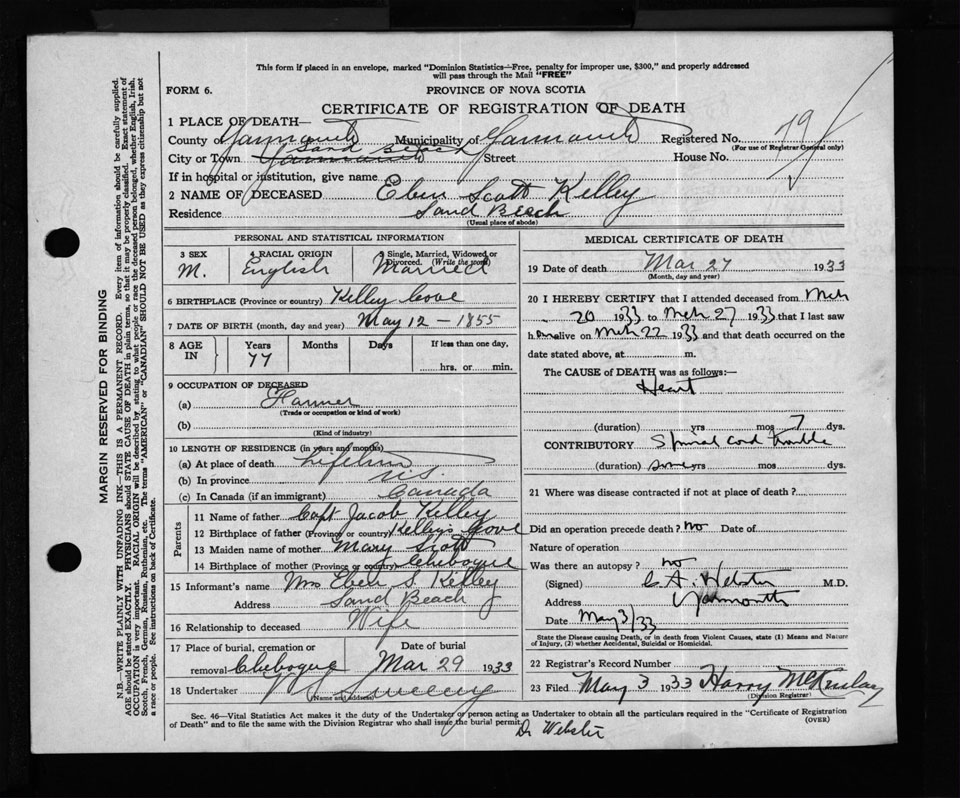 This form if placed in an envelope, marked "Dominion Statistics—Free, penalty for improper use, $300," and properly addressed
will pass through the Mail "FREE"
FORM 6. PROVINCE OF NOVA SCOTIA
CERTIFICATE OF REGISTRATION OF DEATH
1 PLACE OF DEATH—
County of Yarmouth Municipality of Yarmouth Registered No. 79
(For use of Registrar General only)
Sand Beach
City or Town Yarmouth Street House No.
If in hospital or institution, give name
2 NAME OF DECEASED Eben Scott Kelley
Residence Sand Beach
(Usual place of abode)
PERSONAL AND STATISTICAL INFORMATION
3 SEX 4 RACIAL ORIGIN 5 Single, Married, Widowed or Divorced. (Write the word)
M. English Married
6 BIRTHPLACE (Province or country) Kelley Cove
7 DATE OF BIRTH (month, day and year) May 12 - 1855
8 AGE IN Years Months Days If less than one day,
77 hrs. or min.
9 OCCUPATION OF DECEASED
(a) Farmer
(Trade or occupation or kind of work)
(b)
(Kind of industry)
10 LENGTH OF RESIDENCE (in years and months)
(a) At place of death Lifetime
(b) In province N.S.
(c) In Canada (if an immigrant) Canada
Parents
11 Name of father Capt Jacob Kelley
12 Birthplace of father (Province or country) Kelley's Cove
13 Maiden name of mother Mary Scott
14 Birthplace of mother (Province or country) Chebogue
15 Informant's name Mrs Eben S. Kelley
Address Sand Beach
16 Relationship to deceased Wife
17 Place of burial, cremation or Date of burial
removal Chebogue Mar 29 1933
18 Undertaker Sweeny
(Name and address)
MEDICAL CERTIFICATE OF DEATH
19 Date of death Mar 27 1933
(Month, day and year)
20 I HEREBY CERTIFY that I attended deceased from Mch
20 1933 to Mch 27 1933 that I last saw
h im alive on Mch 22 1933 and that death occurred on the
date stated above, at m.
The CAUSE of DEATH was as follows:—
Heart
(duration) yrs mos 7 dys.
CONTRIBUTORY Spinal cord trouble
(duration) some yrs mos dys.
21 Where was disease contracted if not at place of death?
Did an operation precede death? no Date of
Nature of operation
Was there an autopsy? no
(Signed) C. A. Webster M.D.
Address Yarmouth
Date May 3/33
State the Disease causing Death, or in death from Violent Causes, state (1) Means and Nature
of Injury, (2) whether Accidental, Suicidal or Homicidal.
22 Registrar's Record Number
23 Filed May 3 1933 Harry McKinlay
(Division Registrar)
Sec. 46—Vital Statistics Act makes it the duty of the Undertaker or person acting as Undertaker to obtain all the particulars required in the "Certificate of Registration
of Death" and to file the same with the Division Registrar who shall issue the burial permit. (OVER)
Dr Webster
MARGIN RESERVED FOR BINDING
N.B.—WRITE PLAINLY WITH UNFADING INK—THIS IS A PERMANENT RECORD. Every item of information should be carefully supplied.
AGE should be stated EXACTLY. PHYSICIANS should STATE CAUSE OF DEATH in plain terms, so that it may be properly classified. Exact statement of
OCCUPATION is very important. RACIAL ORIGIN will be described by stating to what people or race the deceased person belonged, whether English, Irish,
Scotch, French, German, Russian, Ruthenian, etc. The terms "AMERICAN" or "CANADIAN" SHOULD NOT BE USED as they express citizenship but not
a race or people. See instructions on back of Certificate.